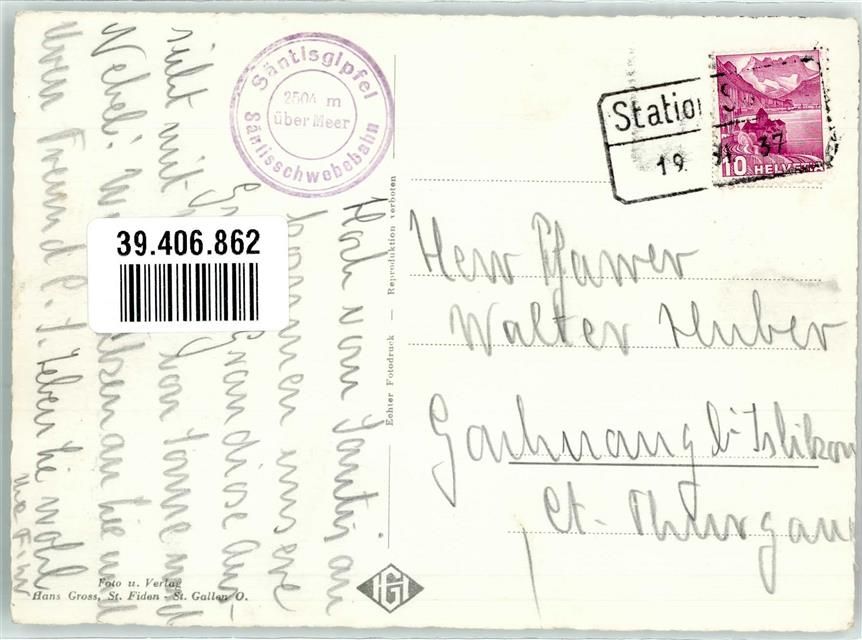 Säntisgipfel
2504 m
über Meer
Säntisschwebebahn
Station
19. 37
10 HELVETIA
39.406.862
Herr Pfarrer
Walter Huber
Gachnang b. Islikon
Ct. Thurgau
Hoch vom Säntis an
kommen unsere
Grandiose Aus-
sicht mit von Sonne und
Nebel. denken an Sie und
Ihren Freund C. J. Leben Sie wohl
Echter Fotodruck — Reproduktion verboten
Foto u. Verlag
Hans Gross, St. Fiden - St. Gallen O.
HG